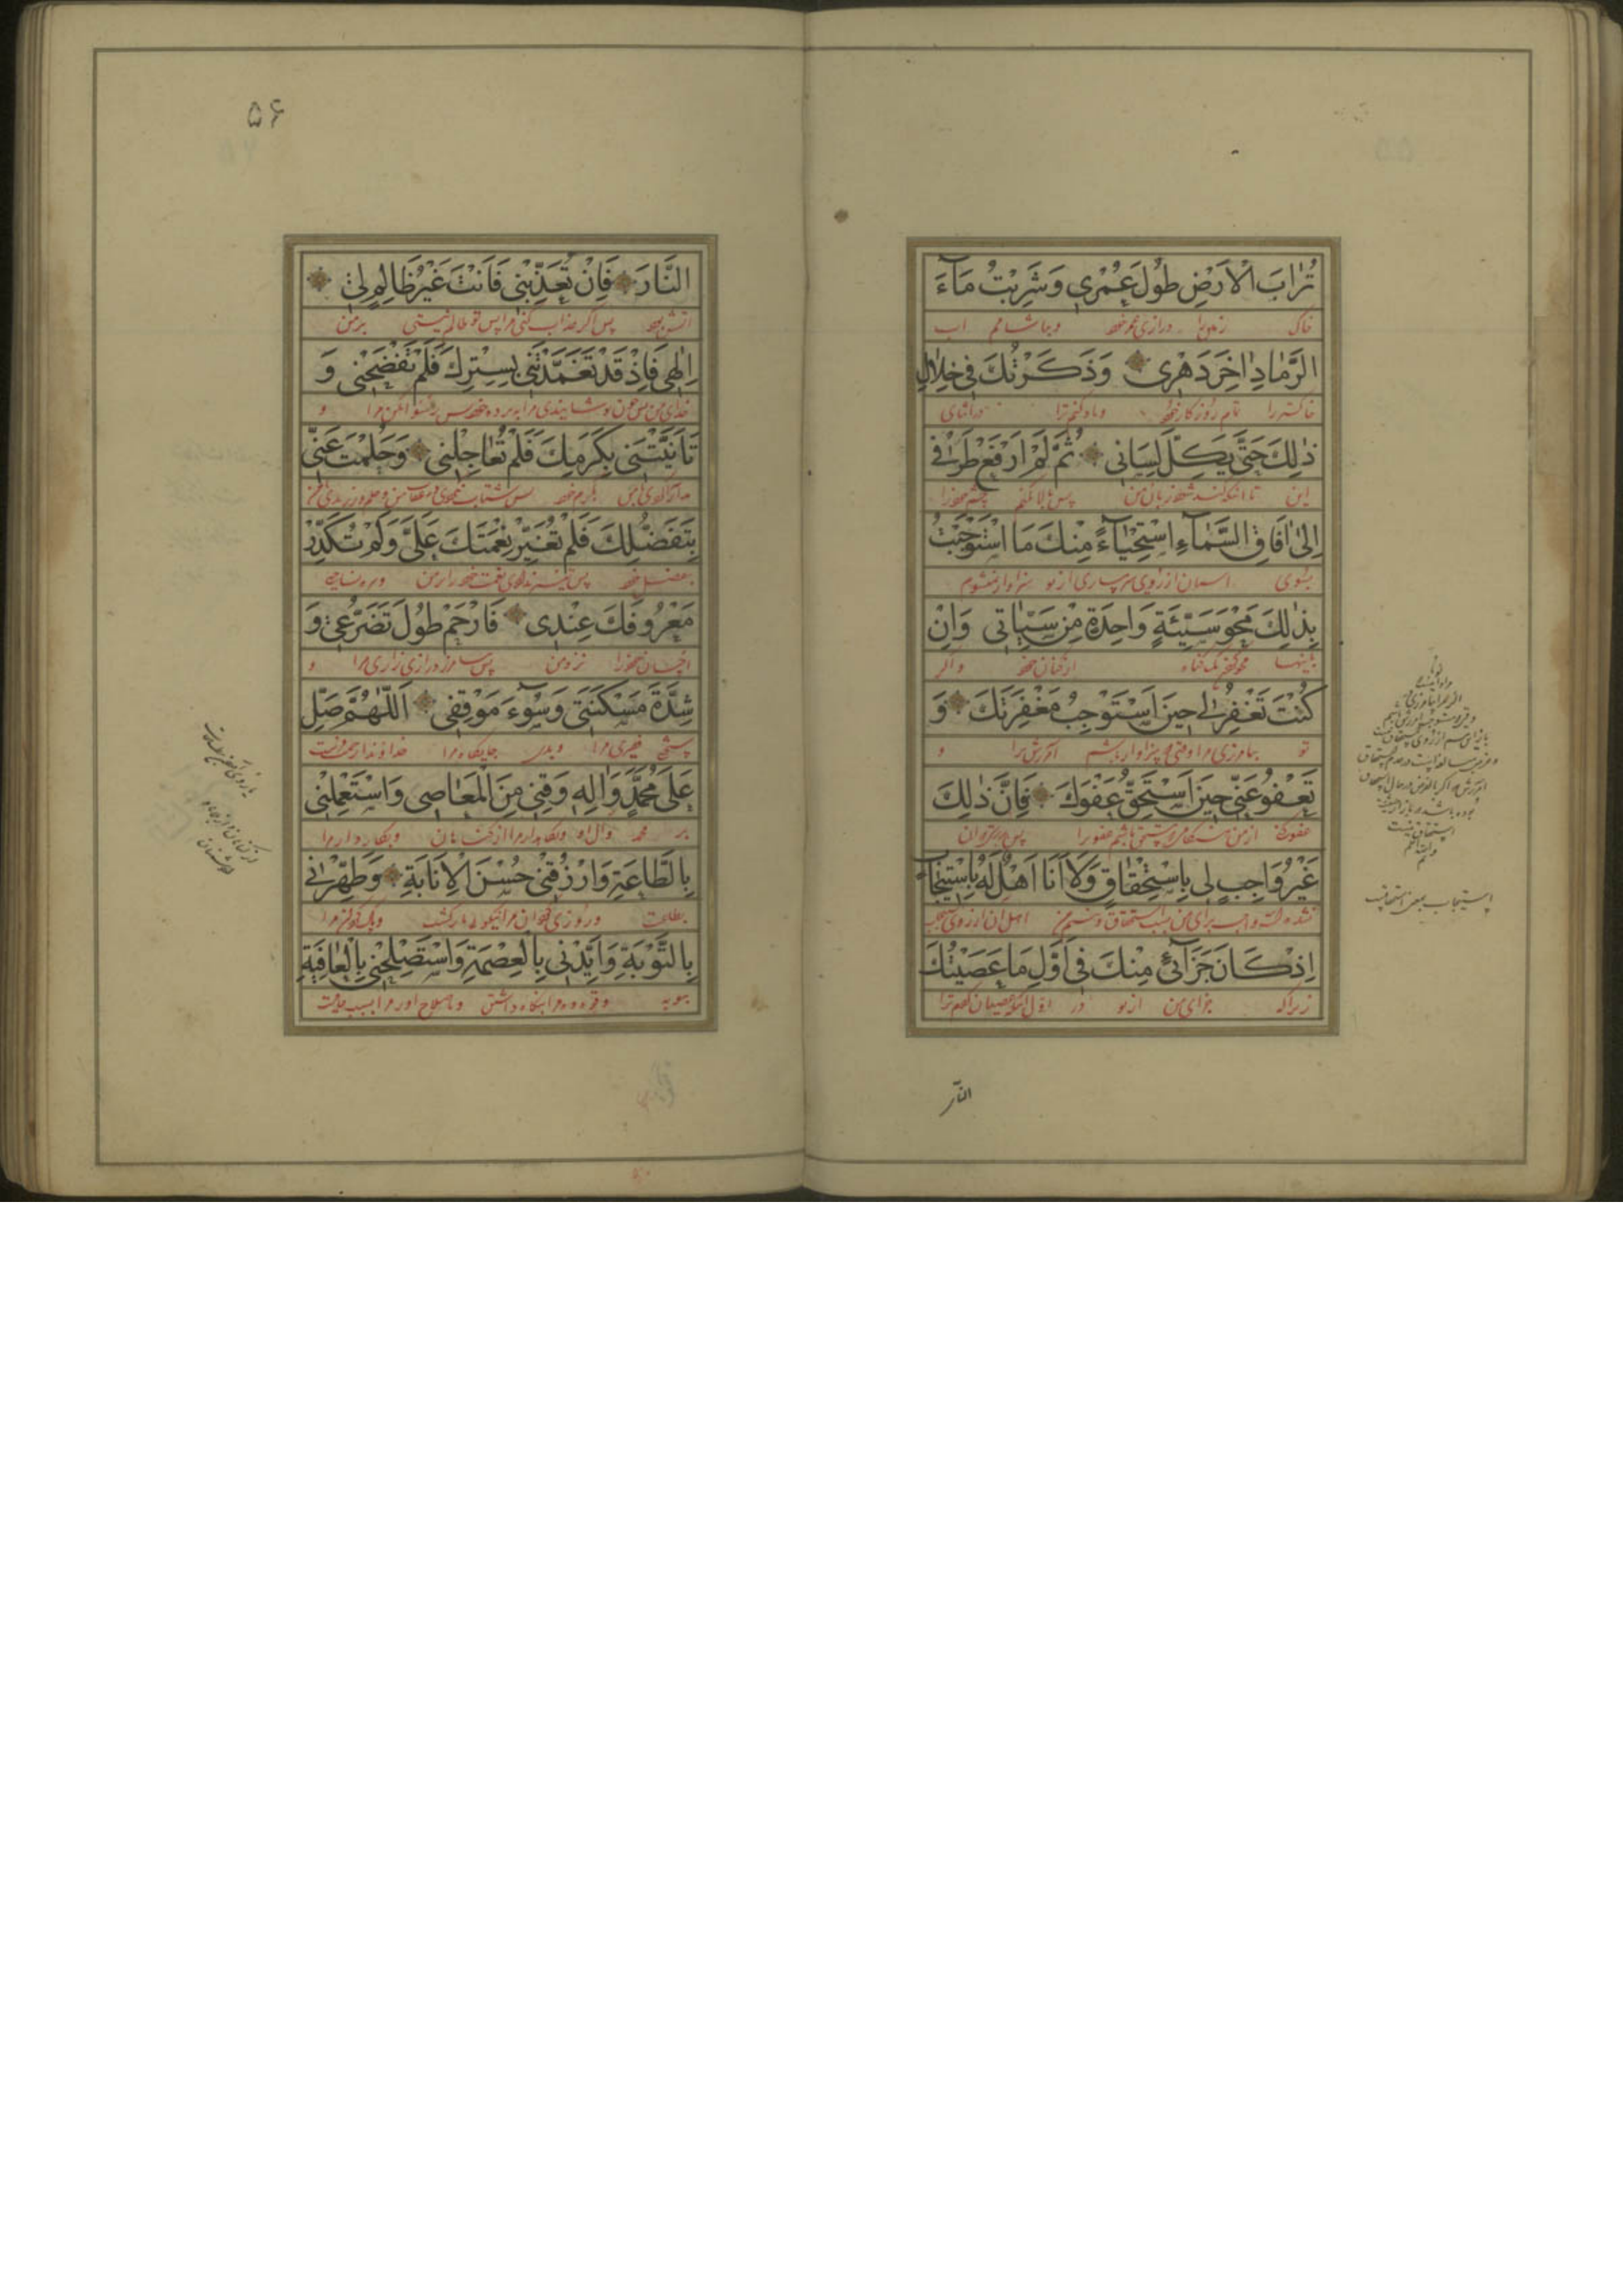 تُرَابَ الْاَرْضِ طُولَ عُمْرِی وَشَرِبْتُ مَآءَ
خاک زمین را درازی عمر خود و بیاشامم آب
الرَّمَادِ اٰخِرَ دَهْرِی وَذَکَرْتُكَ فِی خِلَالِ
خاکستر را تمام روزکار خود و یاد کنم ترا در اثنای
ذٰلِكَ حَتّٰی یَکِلَّ لِسَانِی ثُمَّ لَمْ اَرْفَعْ طَرْفِی
این تا انکه کند شود زبان من پس بالا نکنم چشم خود را
اِلٰی اٰفَاقِ السَّمَآءِ اسْتِحْیَآءً مِنْكَ مَا اسْتَوْجَبْتُ
بسوی اسمان از روی شرمساری از تو سزاوار نمیشوم
بِذٰلِكَ مَحْوَ سَیِّئَةٍ وَاحِدَةٍ مِنْ سَیِّئَاتِی وَاِنْ
باینها محو کردن یک کناه از کناهان خود و اکر
کُنْتَ تَغْفِرُ لِی حِینَ اَسْتَوْجِبُ مَغْفِرَتَكَ وَ
تو بیامرزی مرا وقتی که سزاوار باشم امرزش ترا و
تَعْفُو عَنِّی حِینَ اَسْتَحِقُّ عَفْوَكَ فَاِنَّ ذٰلِكَ
عفو کنی از من هنکامی که مستحق باشم عفو ترا پس بدرستیکه ان
غَیْرُ وَاجِبٍ لِی بِاسْتِحْقَاقٍ وَلَا اَنَا اَهْلٌ لَهُ بِاسْتِیجَابٍ
برای من بسبب استحقاق و نیستم من اهل ان از روی
اِذْ کَانَ جَزَآئِی مِنْكَ فِی اَوَّلِ مَا عَصَیْتُكَ
زیرا که جزای من از تو در اول انکه عصیان کردم ترا
استیجاب بمعنی استحقاق
النّار
۵۶
النَّارَ فَاِنْ تُعَذِّبْنِی فَاَنْتَ غَیْرُ ظَالِمٍ لِی
اتش بود پس اکر عذاب کنی مرا پس تو ظالم نیستی بر من
اِلٰهِی فَاِذْ قَدْ تَغَمَّدْتَنِی بِسِتْرِكَ فَلَمْ تَفْضَحْنِی وَ
خدای من پس چون پوشانیدی مرا به پرده خود پس رسوا نکردی مرا و
تَاَنَّیْتَنِی بِکَرَمِكَ فَلَمْ تُعَاجِلْنِی وَحَلُمْتَ عَنِّی
بکرم خود پس شتاب
بِتَفَضُّلِكَ فَلَمْ تُغَیِّرْ نِعْمَتَكَ عَلَیَّ وَلَمْ تُکَدِّرْ
بفضل خود پس تغییر ندادی نعمت خود را بر من
مَعْرُوفَكَ عِنْدِی فَارْحَمْ طُولَ تَضَرُّعِی وَ
احسان خود را نزد من پس درازی زاری مرا و
شِدَّةَ مَسْکَنَتِی وَسُوٓءَ مَوْقِفِی اَللّٰهُمَّ صَلِّ
فقیری مرا و بدی جایکاه مرا خداوندا رحمت فرست
عَلٰی مُحَمَّدٍ وَاٰلِهِ وَقِنِی مِنَ الْمَعَاصِی وَاسْتَعْمِلْنِی
بر محمد و آل او و نکاهدار مرا از کناهان و بکار دار مرا
بِالطَّاعَةِ وَارْزُقْنِی حُسْنَ الْاِنَابَةِ وَطَهِّرْنِی
بطاعت و روزی کردان مرا نیکوئی بازکشت و پاک کردان مرا
بِالتَّوْبَةِ وَاَیِّدْنِی بِالْعِصْمَةِ وَاسْتَصْلِحْنِی بِالْعَافِیَةِ
بتوبه و قوت ده مرا بنکاه داشتن و باصلاح اور مرا بسبب عافیت